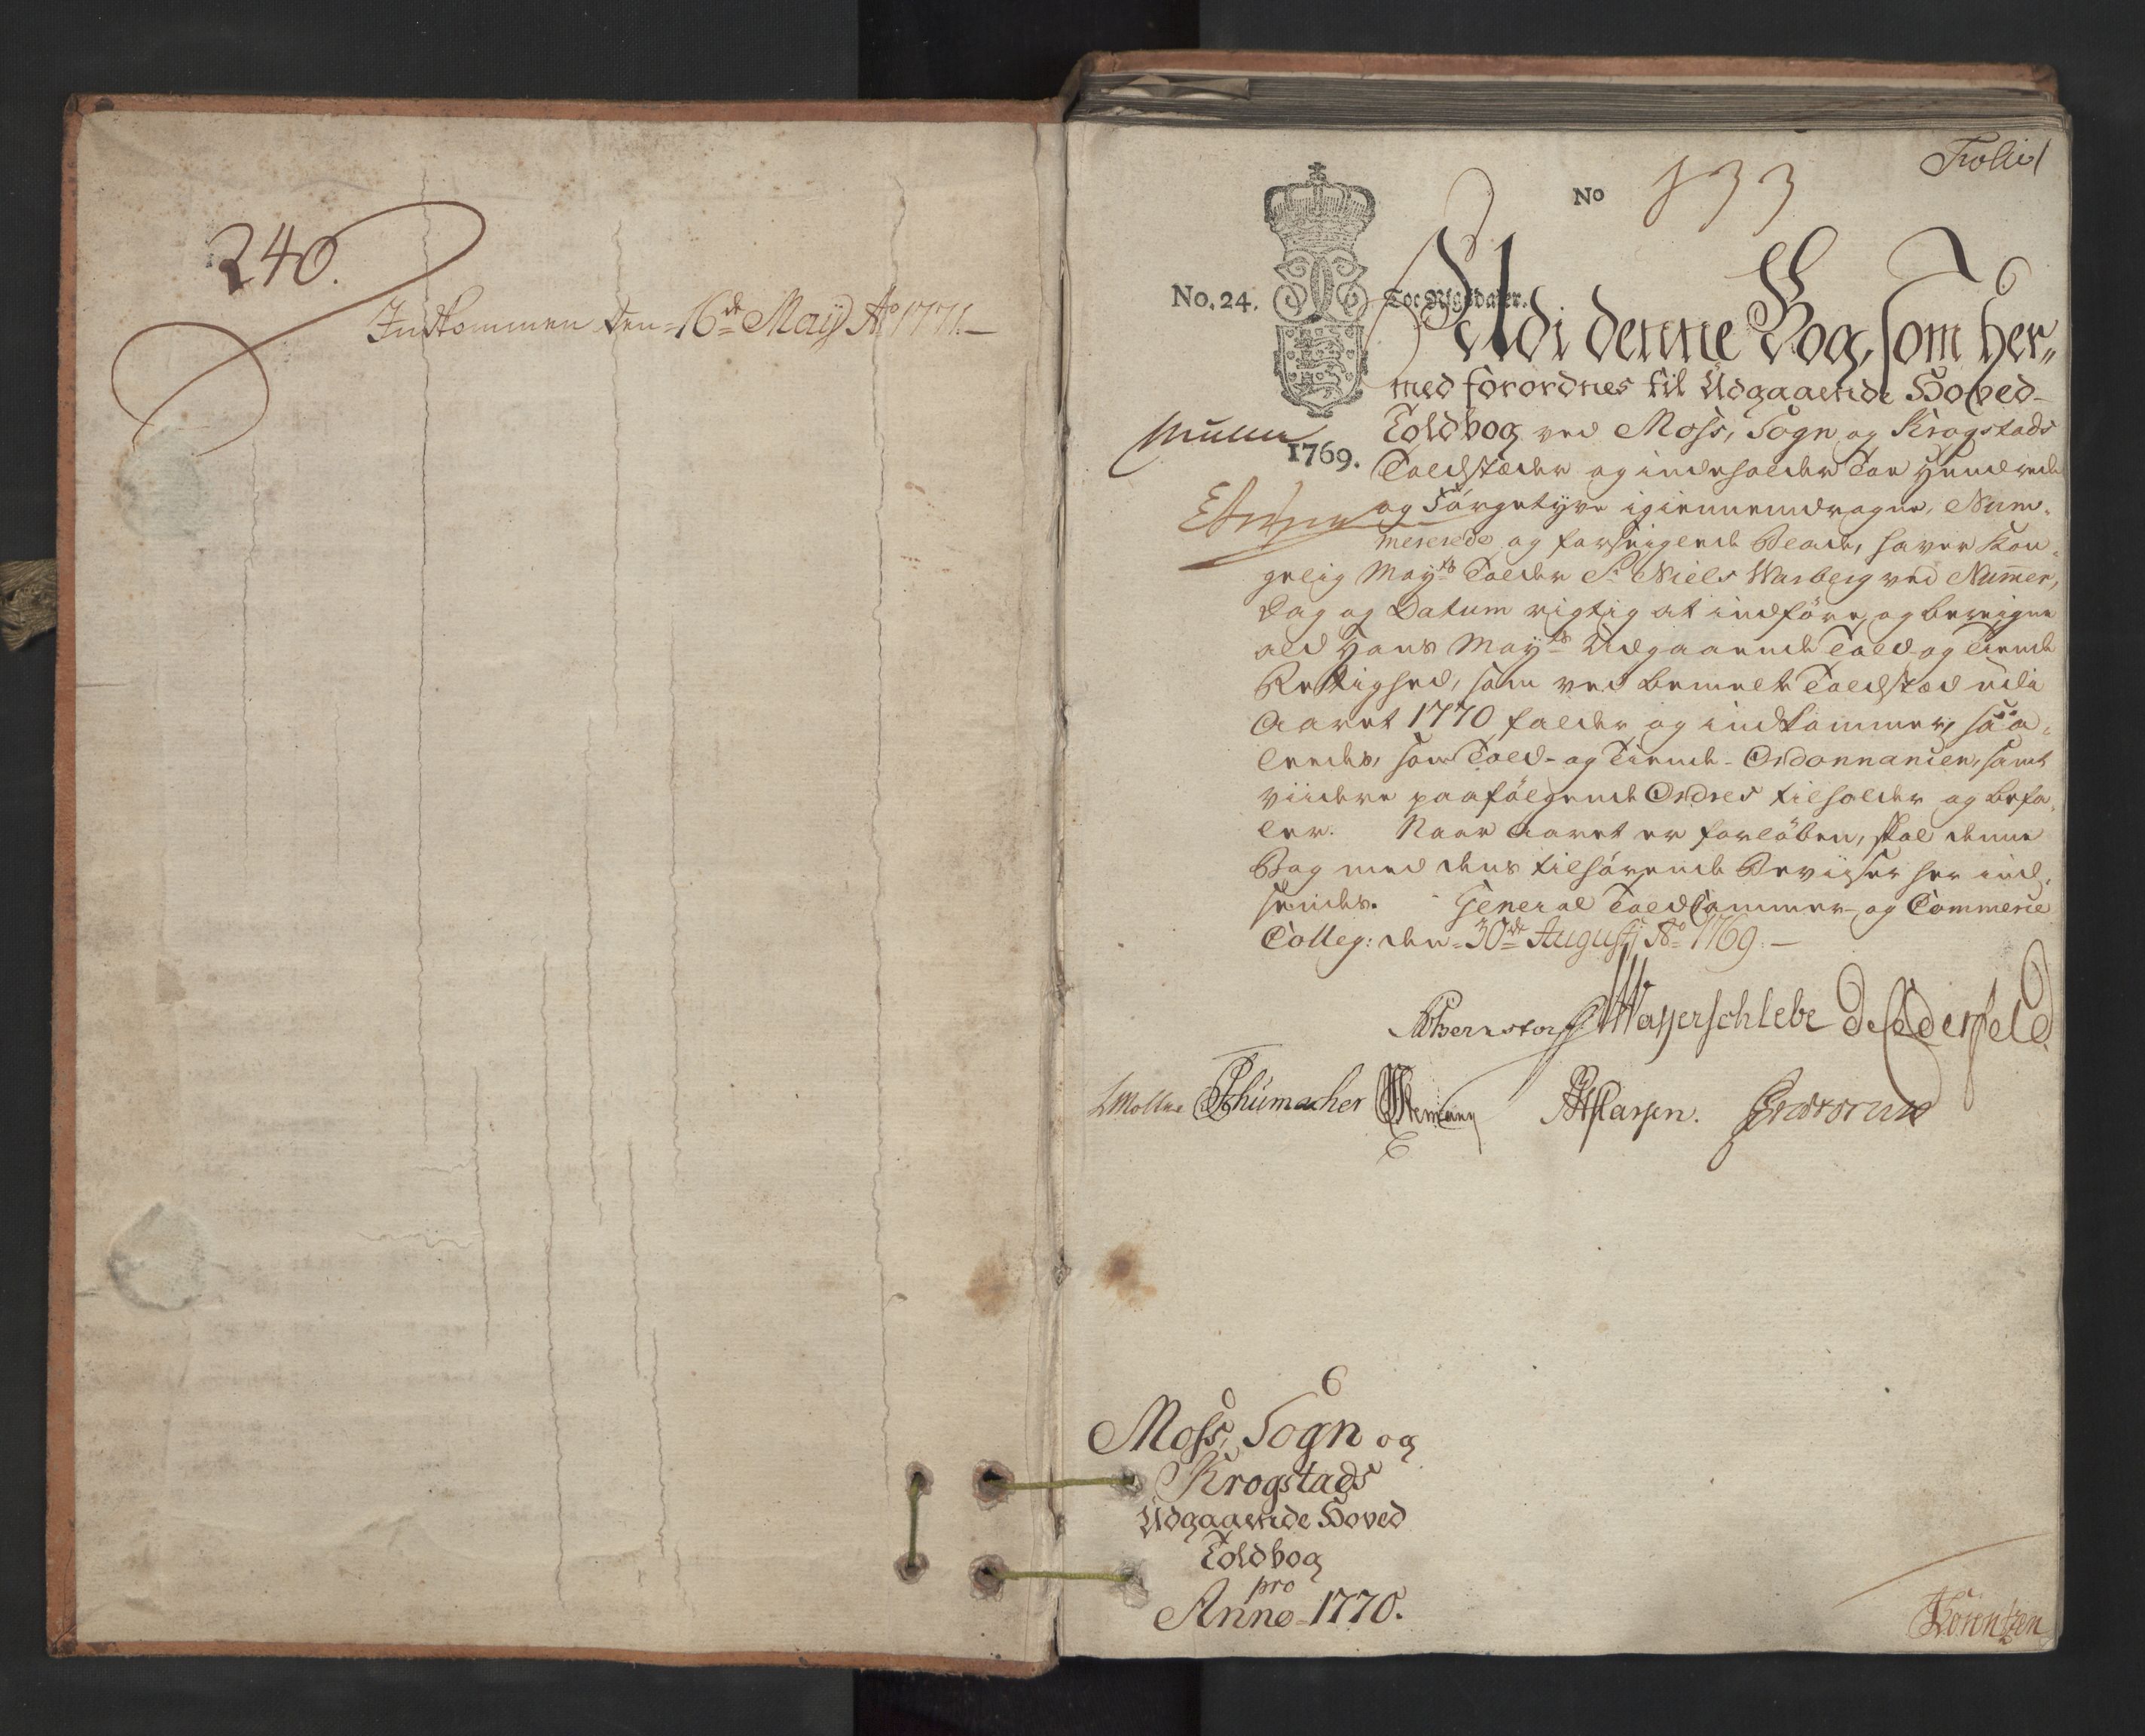 240.
Indkommen den 16de Maij Ao 1771.
Folio 1
No 133
No. 24. Toe Rigsdaler.
Udi denne Bog, som her„
med forordnes til Udgaaende Hoved-
Toldbog ved Moss, Sogn og Krogstads
1769.
Toldstæder og indeholder Toe Hundrede
og Förgetyve igiennemdragne, Num-
mererede og forseiglede Blade, haver Kon-
gelig Mayts Tolder Sr Niels Warberg ved Numer,
Dag og Datum rigtig at indføre og beregne
ald Hans Mayts Udgaaende Told og Tiende
Rettighed, som ved bemelte Toldsted udi
Aaret 1770 falder og indkommer, saa-
ledes, som Told- og Tiende-Ordonnancen, samt
viidere paafølgende Ordres tilholder og befa-
ler. Naar Aaret er forløben, skal denne
Bog med dens tilhørende Beviiser her ind-
sendes. General Toldkammer- og Commerce
Colleg: den 30de Augustij Ao 1769.
Bernstorff Wasserschlebe de Ccederfeld
LMoltke Schumacher Stemann Classen.
6
Moss, Sogn og
Krogstads
Udgaaende Hoved
Toldbog
pro
Anno 1770.
Lorentzen